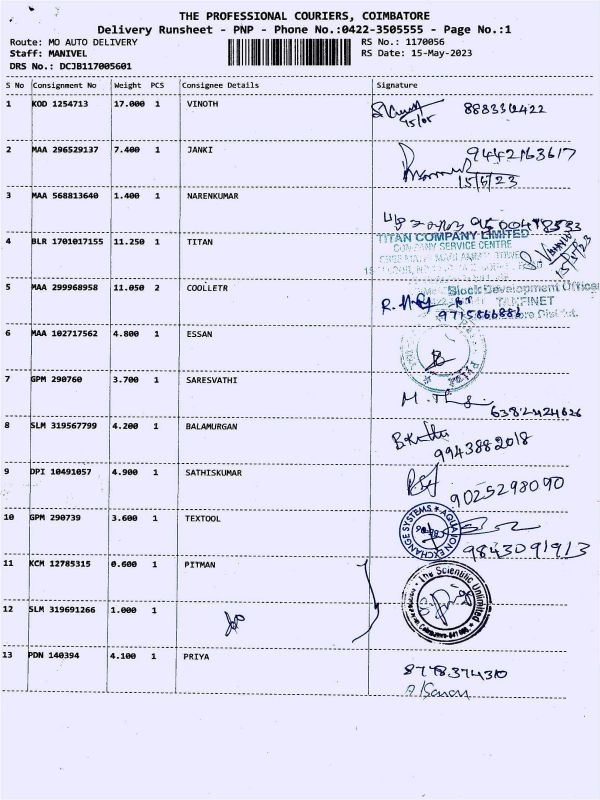 THE PROFESSIONAL COURIERS, COIMBATORE
Delivery Runsheet - PNP - Phone No.:0422-3505555 - Page No.:1
Route: MO AUTO DELIVERY RS No.: 1170056
Staff: MANIVEL RS Date: 15-May-2023
DRS No.: DCJB117005601
S No Consignment No Weight PCS Consignee Details Signature
1 KOD 1254713 17.000 1 VINOTH
15/05
2 MAA 296529137 7.400 1 JANKI 9442163617
15/5/23
3 MAA 568813640 1.400 1 NARENKUMAR
4 BLR 1701017155 11.250 1 TITAN TITAN COMPANY LIMITED
COMPANY SERVICE CENTRE
15/5/23
5 MAA 299968958 11.050 2 COOLLETR Block Development Officer
TANFINET
9715866886
6 MAA 102717562 4.800 1 ESSAN
7 GPM 290760 3.700 1 SARESVATHI
6382424626
8 SLM 319567799 4.200 1 BALAMURGAN
9943882018
9 DPI 10491057 4.900 1 SATHISKUMAR
9025298090
10 GPM 290739 3.600 1 TEXTOOL AQUA ION EXCHANGE SYSTEMS
9843091913
11 KCM 12785315 0.600 1 PITMAN The Scientific Unlimited
12 SLM 319691266 1.000 1
13 PDN 140394 4.100 1 PRIYA
8778374310